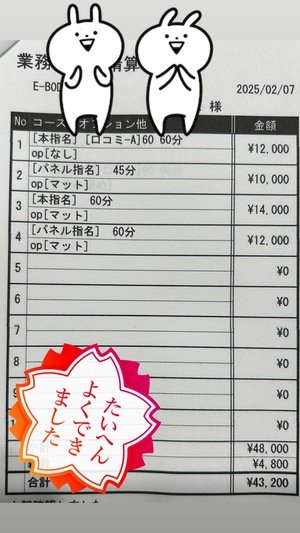 業務 精算
E-BOD
2025/02/07
様
No コース オプション他 金額
1 [本指名] [口コミ-A]60 60分
op[なし] ¥12,000
2 [パネル指名] 45分
op[マット] ¥10,000
3 [本指名] 60分
op[マット] ¥14,000
4 [パネル指名] 60分
op[マット] ¥12,000
5 ¥0
6 ¥0
7 ¥0
8 ¥0
9 ¥0
1 ¥0
¥48,000
¥4,800
合計 ¥43,200
たいへん
よくでき
ました